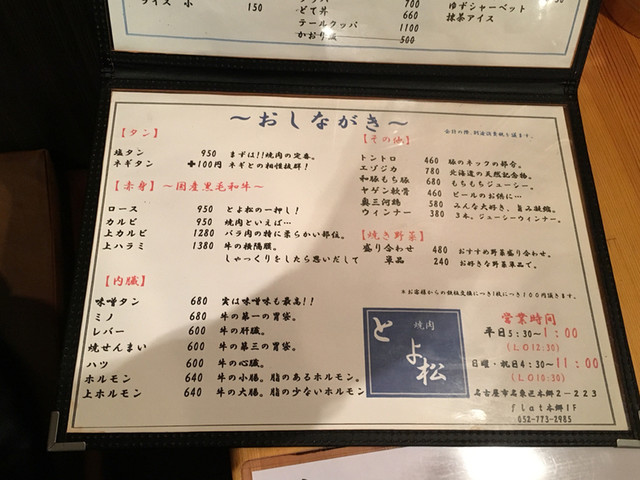 ライス 小 150
700
どて丼 660
テールクッパ 1100
500
ゆずシャーベット
抹茶アイス
～おしながき～
【タン】
塩タン 950 まずは!!焼肉の定番。
ネギタン +100円 ネギとの相性抜群!
【赤身】～国産黒毛和牛～
ロース 950 とよ松の一押し!
カルビ 950 焼肉といえば…
上カルビ 1280 バラ肉の特に柔らかい部位。
上ハラミ 1380 牛の横隔膜。
しゃっくりをしたら思いだして
【内臓】
味噌タン 680 実は味噌味も最高!!
ミノ 680 牛の第一の胃袋。
レバー 600 牛の肝臓。
焼せんまい 600 牛の第三の胃袋。
ハツ 600 牛の心臓。
ホルモン 640 牛の小腸。脂のあるホルモン。
上ホルモン 640 牛の大腸。脂の少ないホルモン
【その他】
トントロ 460 豚のネックの部分。
エゾジカ 780 北海道の天然記念物。
和豚もち豚 680 もちもちジューシー。
ヤゲン軟骨 460 ビールのお供に…
奥三河鶏 580 みんな大好き。旨み凝縮。
ウィンナー 380 3本。ジューシーウィンナー。
【焼き野菜】
盛り合わせ 480 おすすめ野菜盛り合わせ。
単品 240 お好きな野菜単品で。
※お客様からの鉄板交換につき1枚につき100円頂きます。
焼肉
とよ松
営業時間
平日5:30～1:00
(LO12:30)
日曜・祝日4:30～11:00
(LO10:30)
名古屋市名東区本郷2－223
flat本郷1F
052-773-2985